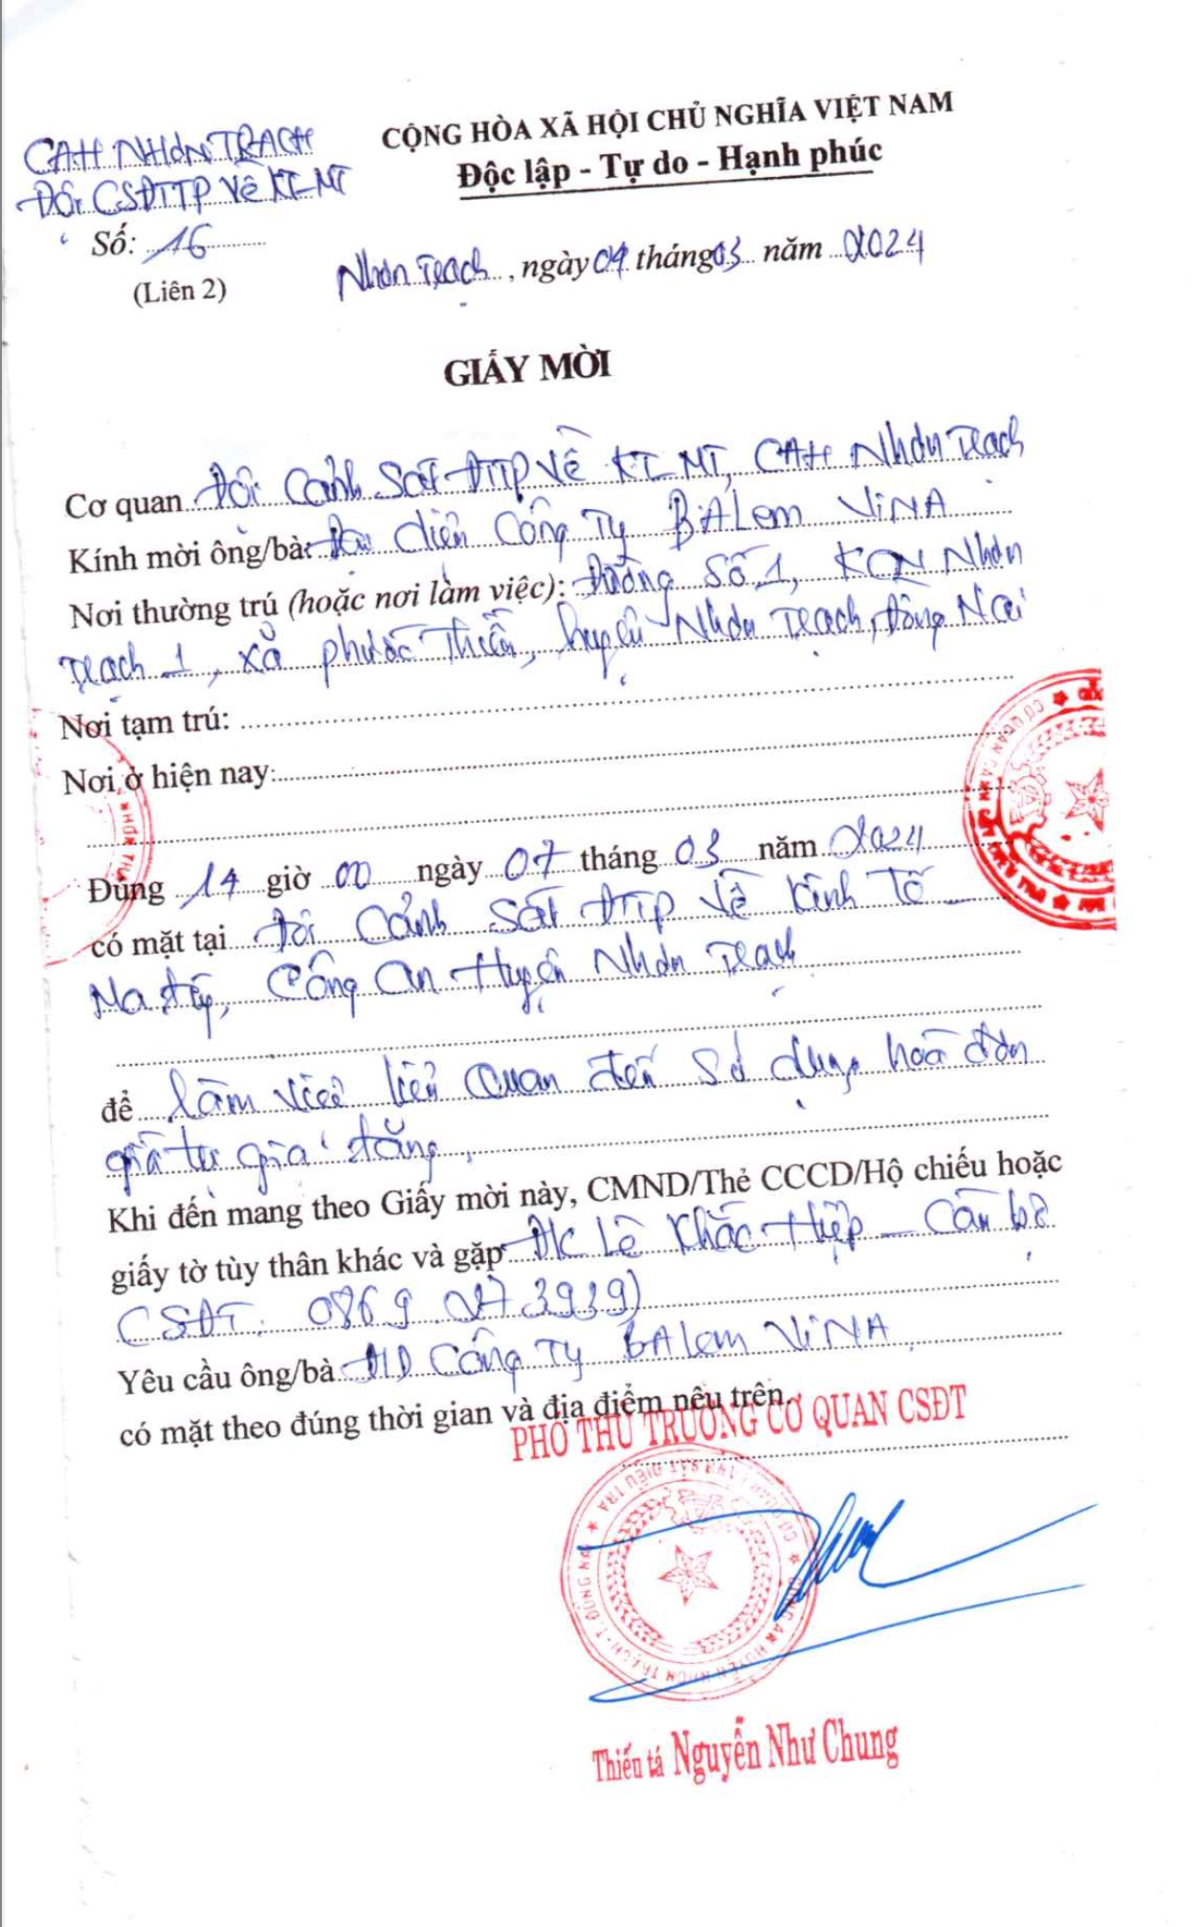 CAH NHƠN TRẠCH
CỘNG HÒA XÃ HỘI CHỦ NGHĨA VIỆT NAM
ĐỘI CSĐTTP Về KT-MT
Độc lập - Tự do - Hạnh phúc
Số: 16
(Liên 2)
Nhơn Trạch, ngày 04 tháng 03 năm 2024
GIẤY MỜI
Cơ quan Đội Cảnh Sát ĐTTP Về KT-MT, CAH Nhơn Trạch
Kính mời ông/bà: Đại diện Công Ty BALem ViNA
Nơi thường trú (hoặc nơi làm việc): Đường Số 1, KCN Nhơn
Trạch 1, xã Phước Thiền, huyện Nhơn Trạch, Đồng Nai
Nơi tạm trú:
Nơi ở hiện nay:
Đúng 14 giờ 00 ngày 07 tháng 03 năm 2024
có mặt tại Đội Cảnh Sát ĐTTP Về Kinh Tế
Ma túy, Công An Huyện Nhơn Trạch
để làm việc liên quan đến sử dụng hoá đơn
giá trị gia tăng.
Khi đến mang theo Giấy mời này, CMND/Thẻ CCCD/Hộ chiếu hoặc
giấy tờ tùy thân khác và gặp Đ/C Lê Khắc Hiệp - Cán bộ
CSĐT. 0869.273939)
Yêu cầu ông/bà ĐD Công Ty BALem ViNA
có mặt theo đúng thời gian và địa điểm nêu trên.
PHÓ THỦ TRƯỞNG CƠ QUAN CSĐT
CƠ QUAN CẢNH SÁT ĐIỀU TRA
CÔNG AN HUYỆN NHƠN TRẠCH - T. ĐỒNG NAI
Thiếu tá Nguyễn Như Chung